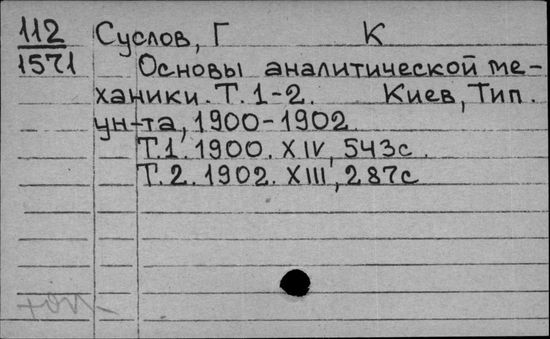 112 Суслов, Г К
1571 Основы аналитической ме-
ханики. Т. 1-2. Киев, Тип.
ун-та, 1900-1902
Т.1. 1900. XIV, 543с.
Т.2. 1902. XIII, 287с